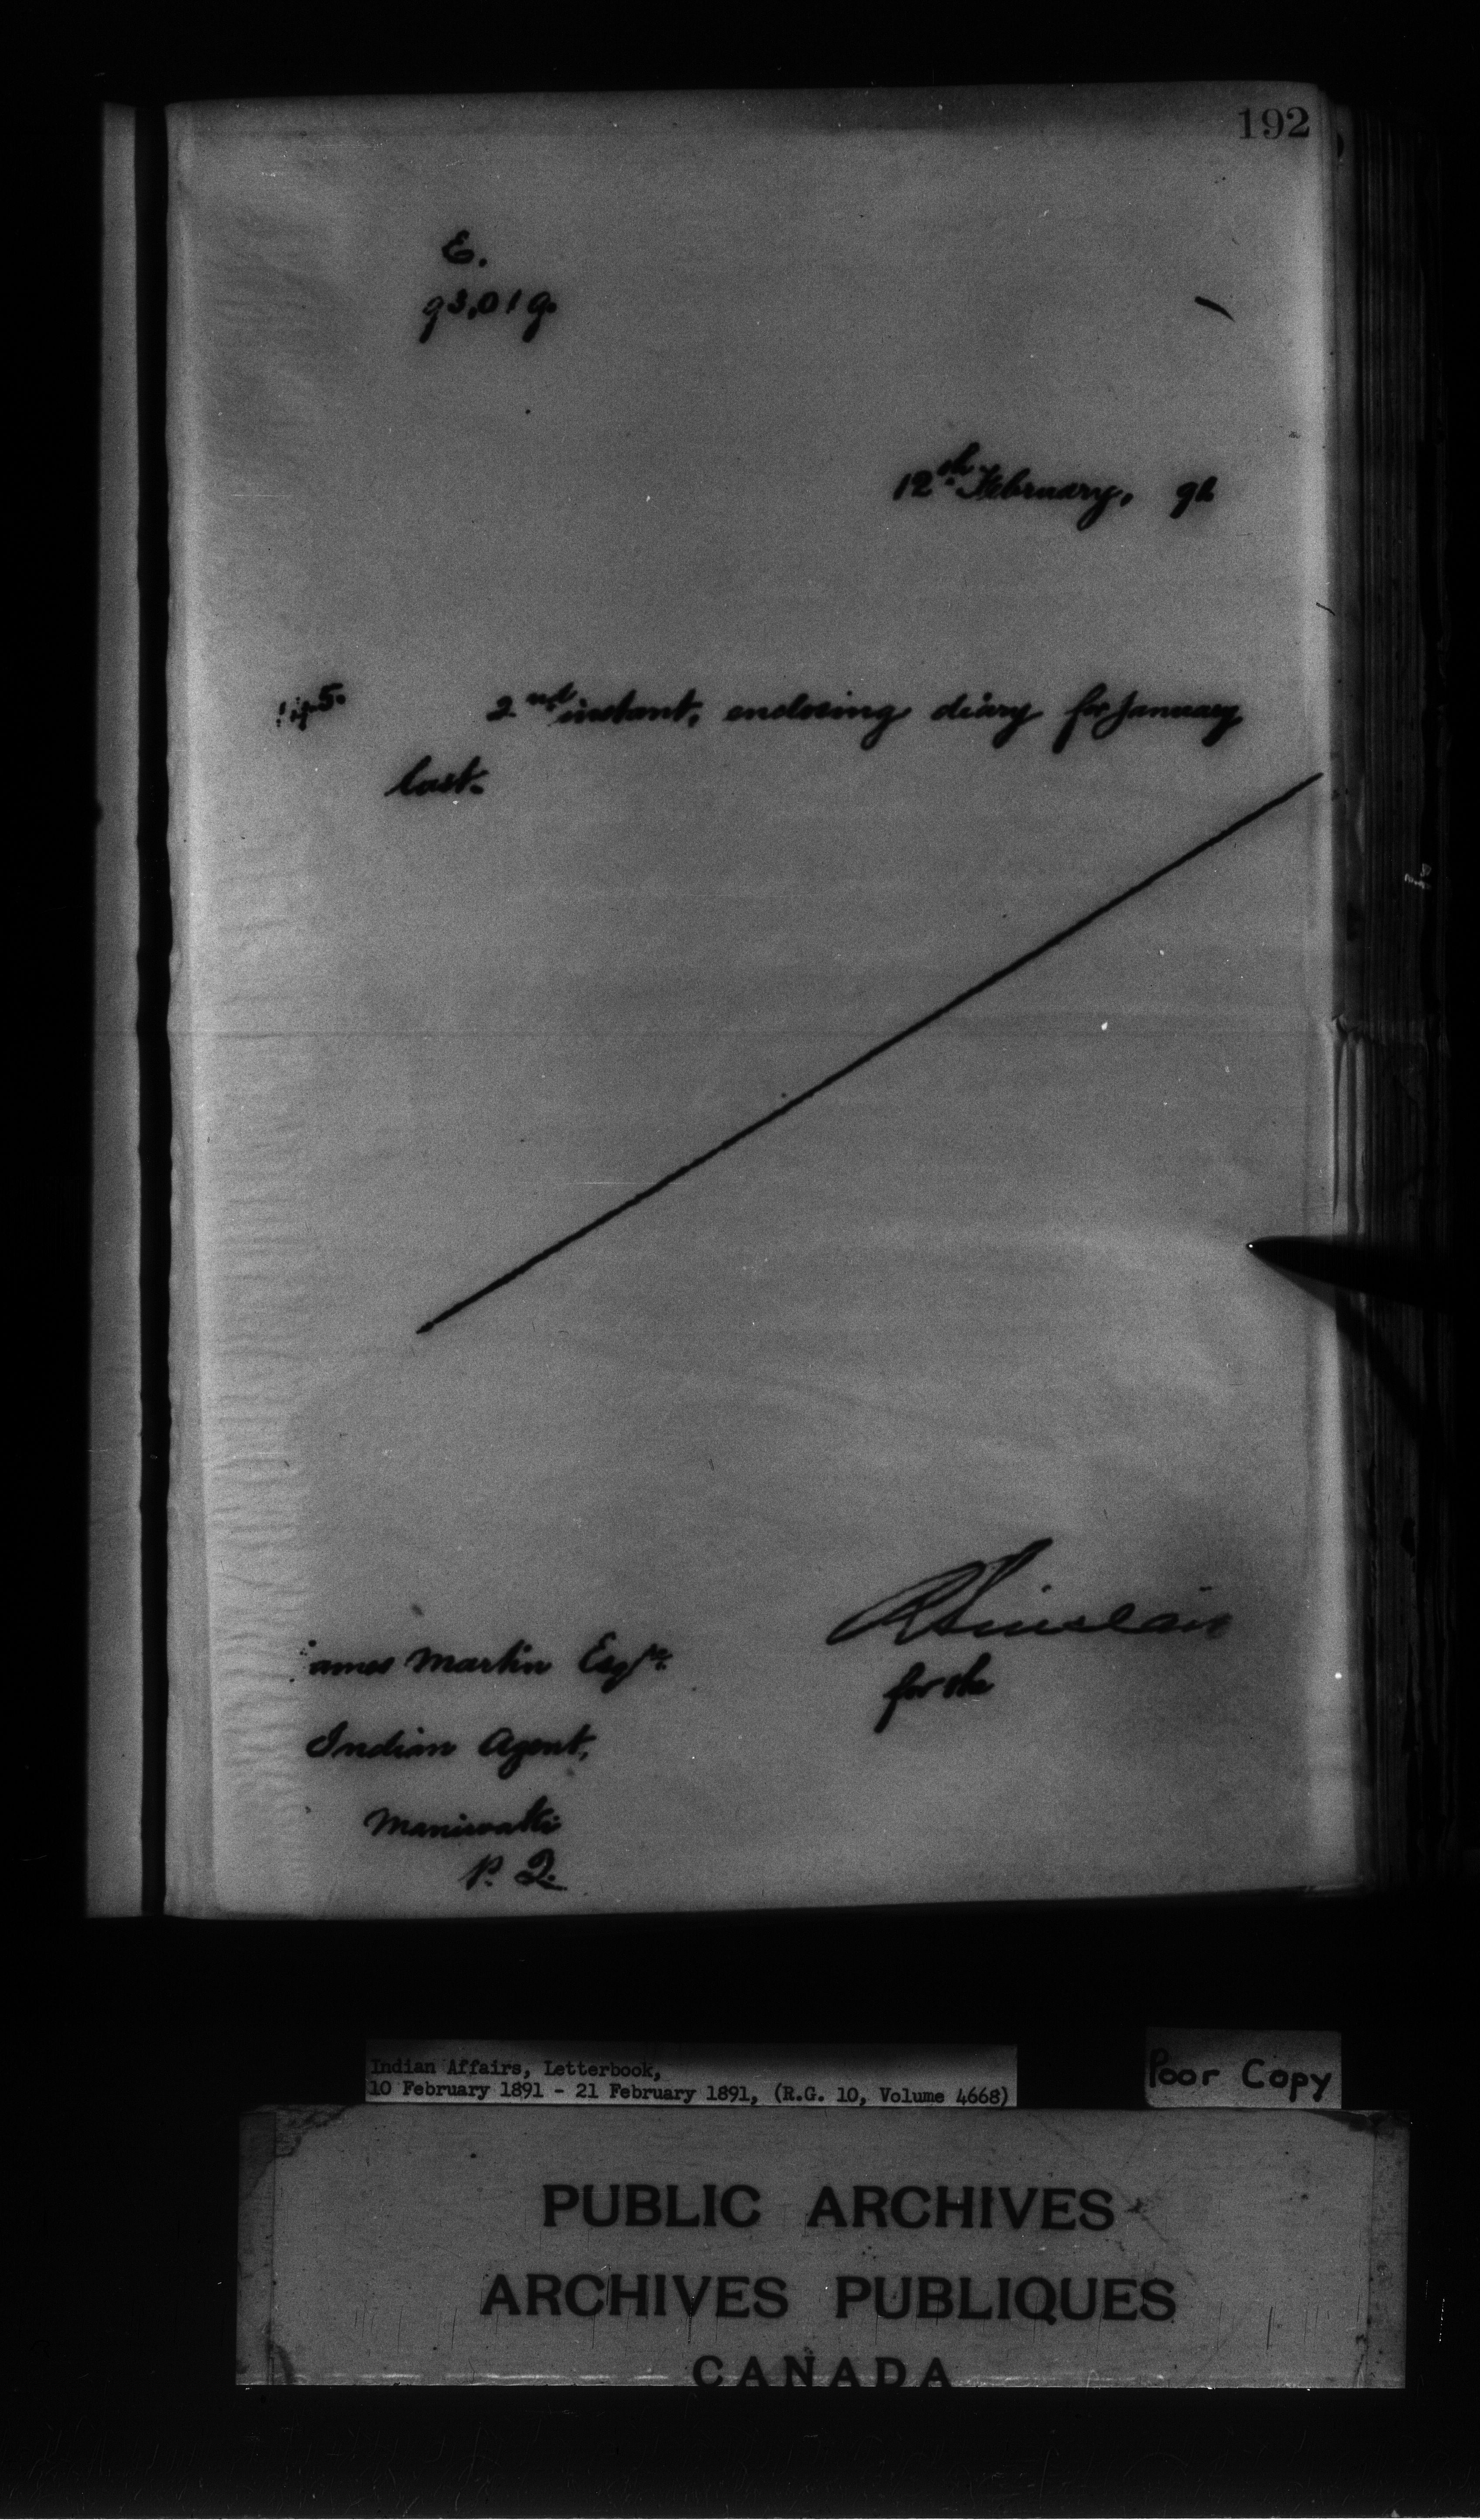 192
E.
93,019.
12th February, 91
2nd instant, enclosing diary for January
last.
R Sinclair
for the
James Martin Esqre.
Indian Agent,
Maniwaki
P. Q.
Indian Affairs, Letterbook,
10 February 1891 - 21 February 1891, (R.G. 10, Volume 4668)
Poor Copy
PUBLIC ARCHIVES
ARCHIVES PUBLIQUES
CANADA